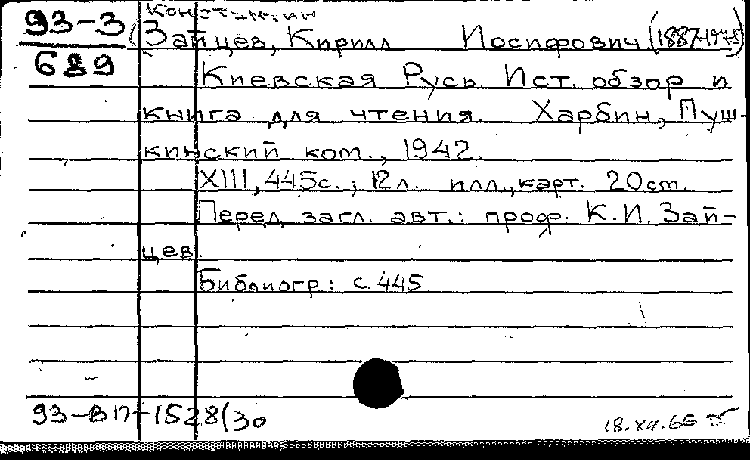 Константин
93-3
689
(Зайцев, Кирилл Иосифович (1887-1975)
Киевская Русь Ист. обзор и
книга для чтения. Харбин, Пуш-
кинский ком., 1942.
XIII, 445с.; 12л. илл., карт. 20см.
Перед загл. авт.: проф. К.И. Зай-
цев
Библиогр: с. 445
93-ВП-1528(30
18.XII.66